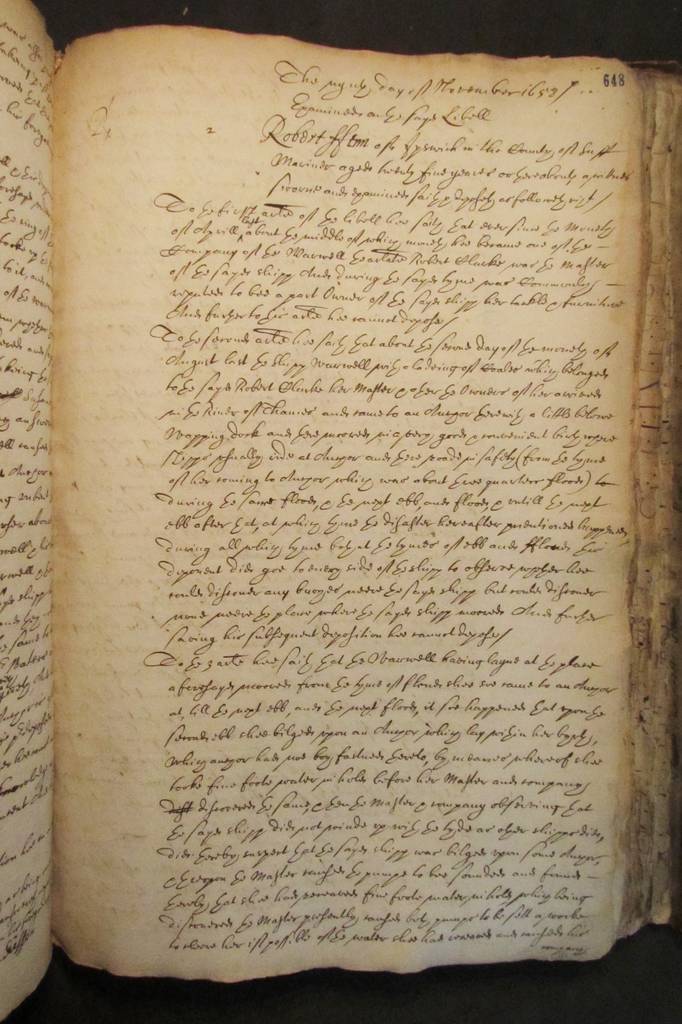 648
The nynth day of November 1653 /
Examined on the sayd Libell
2
Robert of Ipswich in the County of Suff
Mariner aged twenty five yeares or thereabouts a witnes
sworne and examined saith & deposeth as followeth vizt /
To the first arle of the libell hee saith that ever since the moneth
of Aprill last about the middle of which moneth hee became one of the
Company of the Warwell the arlate Robert Clarke was the Master
of the sayd shipp And during the sayd tyme was Commonly
reputed to bee a part Owner of the sayd shipp her tackle & furniture
And further to this arle hee cannot depose /
To the second arle hee saith that about the second day of the moneth of
August last the shipp Warwell with a lading of Coales which belonged
to the sayd Robert Clarke her Master & other the Owners of her arrived
in the River of Thames and came to an Anchor therewith a little below
Wapping dock and there moored in a very good & convenient birth where
shipps usually ride at Anchor and there roade in safety from the tyme
of her coming to Anchor which was about three quarters floods to
during the same floods, & the next ebb, and floods, & untill the next
ebb after that, at which tyme the disaster hereafter mentioned happened
during all which tyme both at the tymes of ebb and floods this
deponent did goe to every side of the shipp to observe whether hee
could discover any buoyes neere the sayd shipp but could discover
none neere the place where the sayd shipp moored And further
saving his subsequent deposition hee cannot depose /
To the 3 arle hee saith that the Warwell having layne at the place
aforesayd moored from the tyme of floods shee soe came to an Anchor
at, till the next ebb, and the next floods, it soe happened that upon the
second ebb shee bilged upon an Anchor which lay within her byrth,
which anchor had noe boy fastned thereto, by meanes whereof shee
tooke five foote water in hold before her Master and company
discovered the same, & then the Master & company observing that
the sayd shipp did not winde up with the tyde as other shipps did,
did thereby suspect that the sayd shipp was bilged upon some Anchor,
& thereupon the Master caused the pumpe to bee sounded and found
thereby that shee had received five foote water in hold which being
discovered the Master presently caused both pumps to be sett a worke
to cleere her if possible of the water shee had received and caused his
company